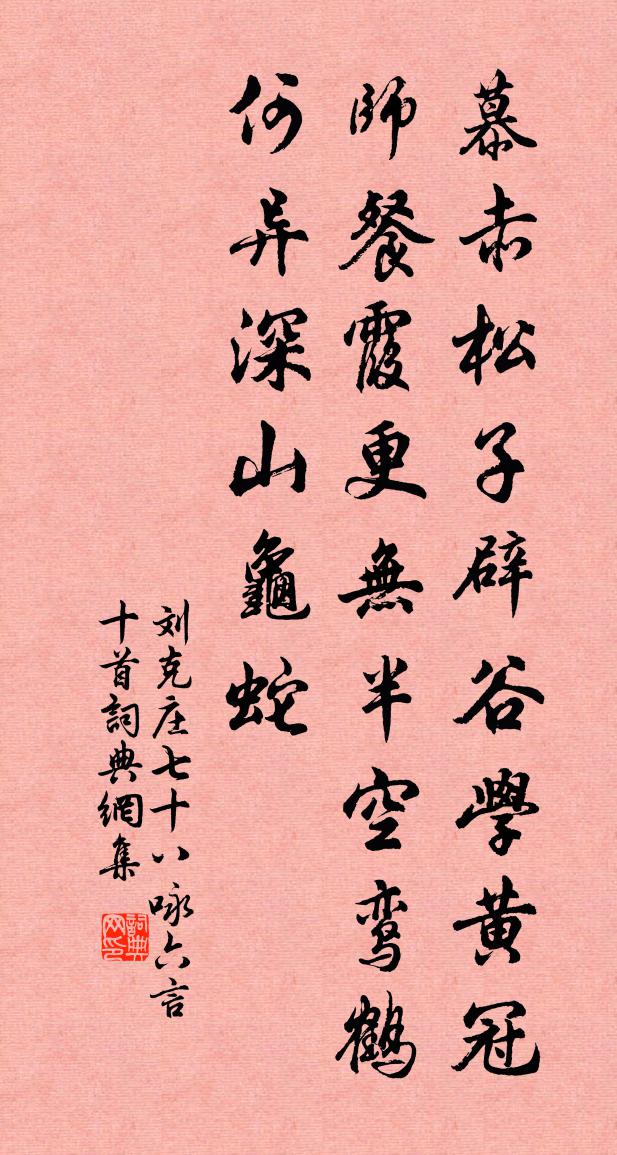 慕赤松子辟谷學黄冠
師餐霞更無半空鸾鶴
何异深山龜蛇
刘克庄七十八咏六言
十首詞典網集
詞典网印